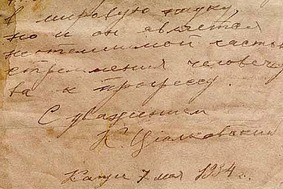 в мировую науку,
но и он является
неотъемлимой частью
стремления человечес
ва к прогрессу.
С уважением
К. Циолковский
7 мая 1934